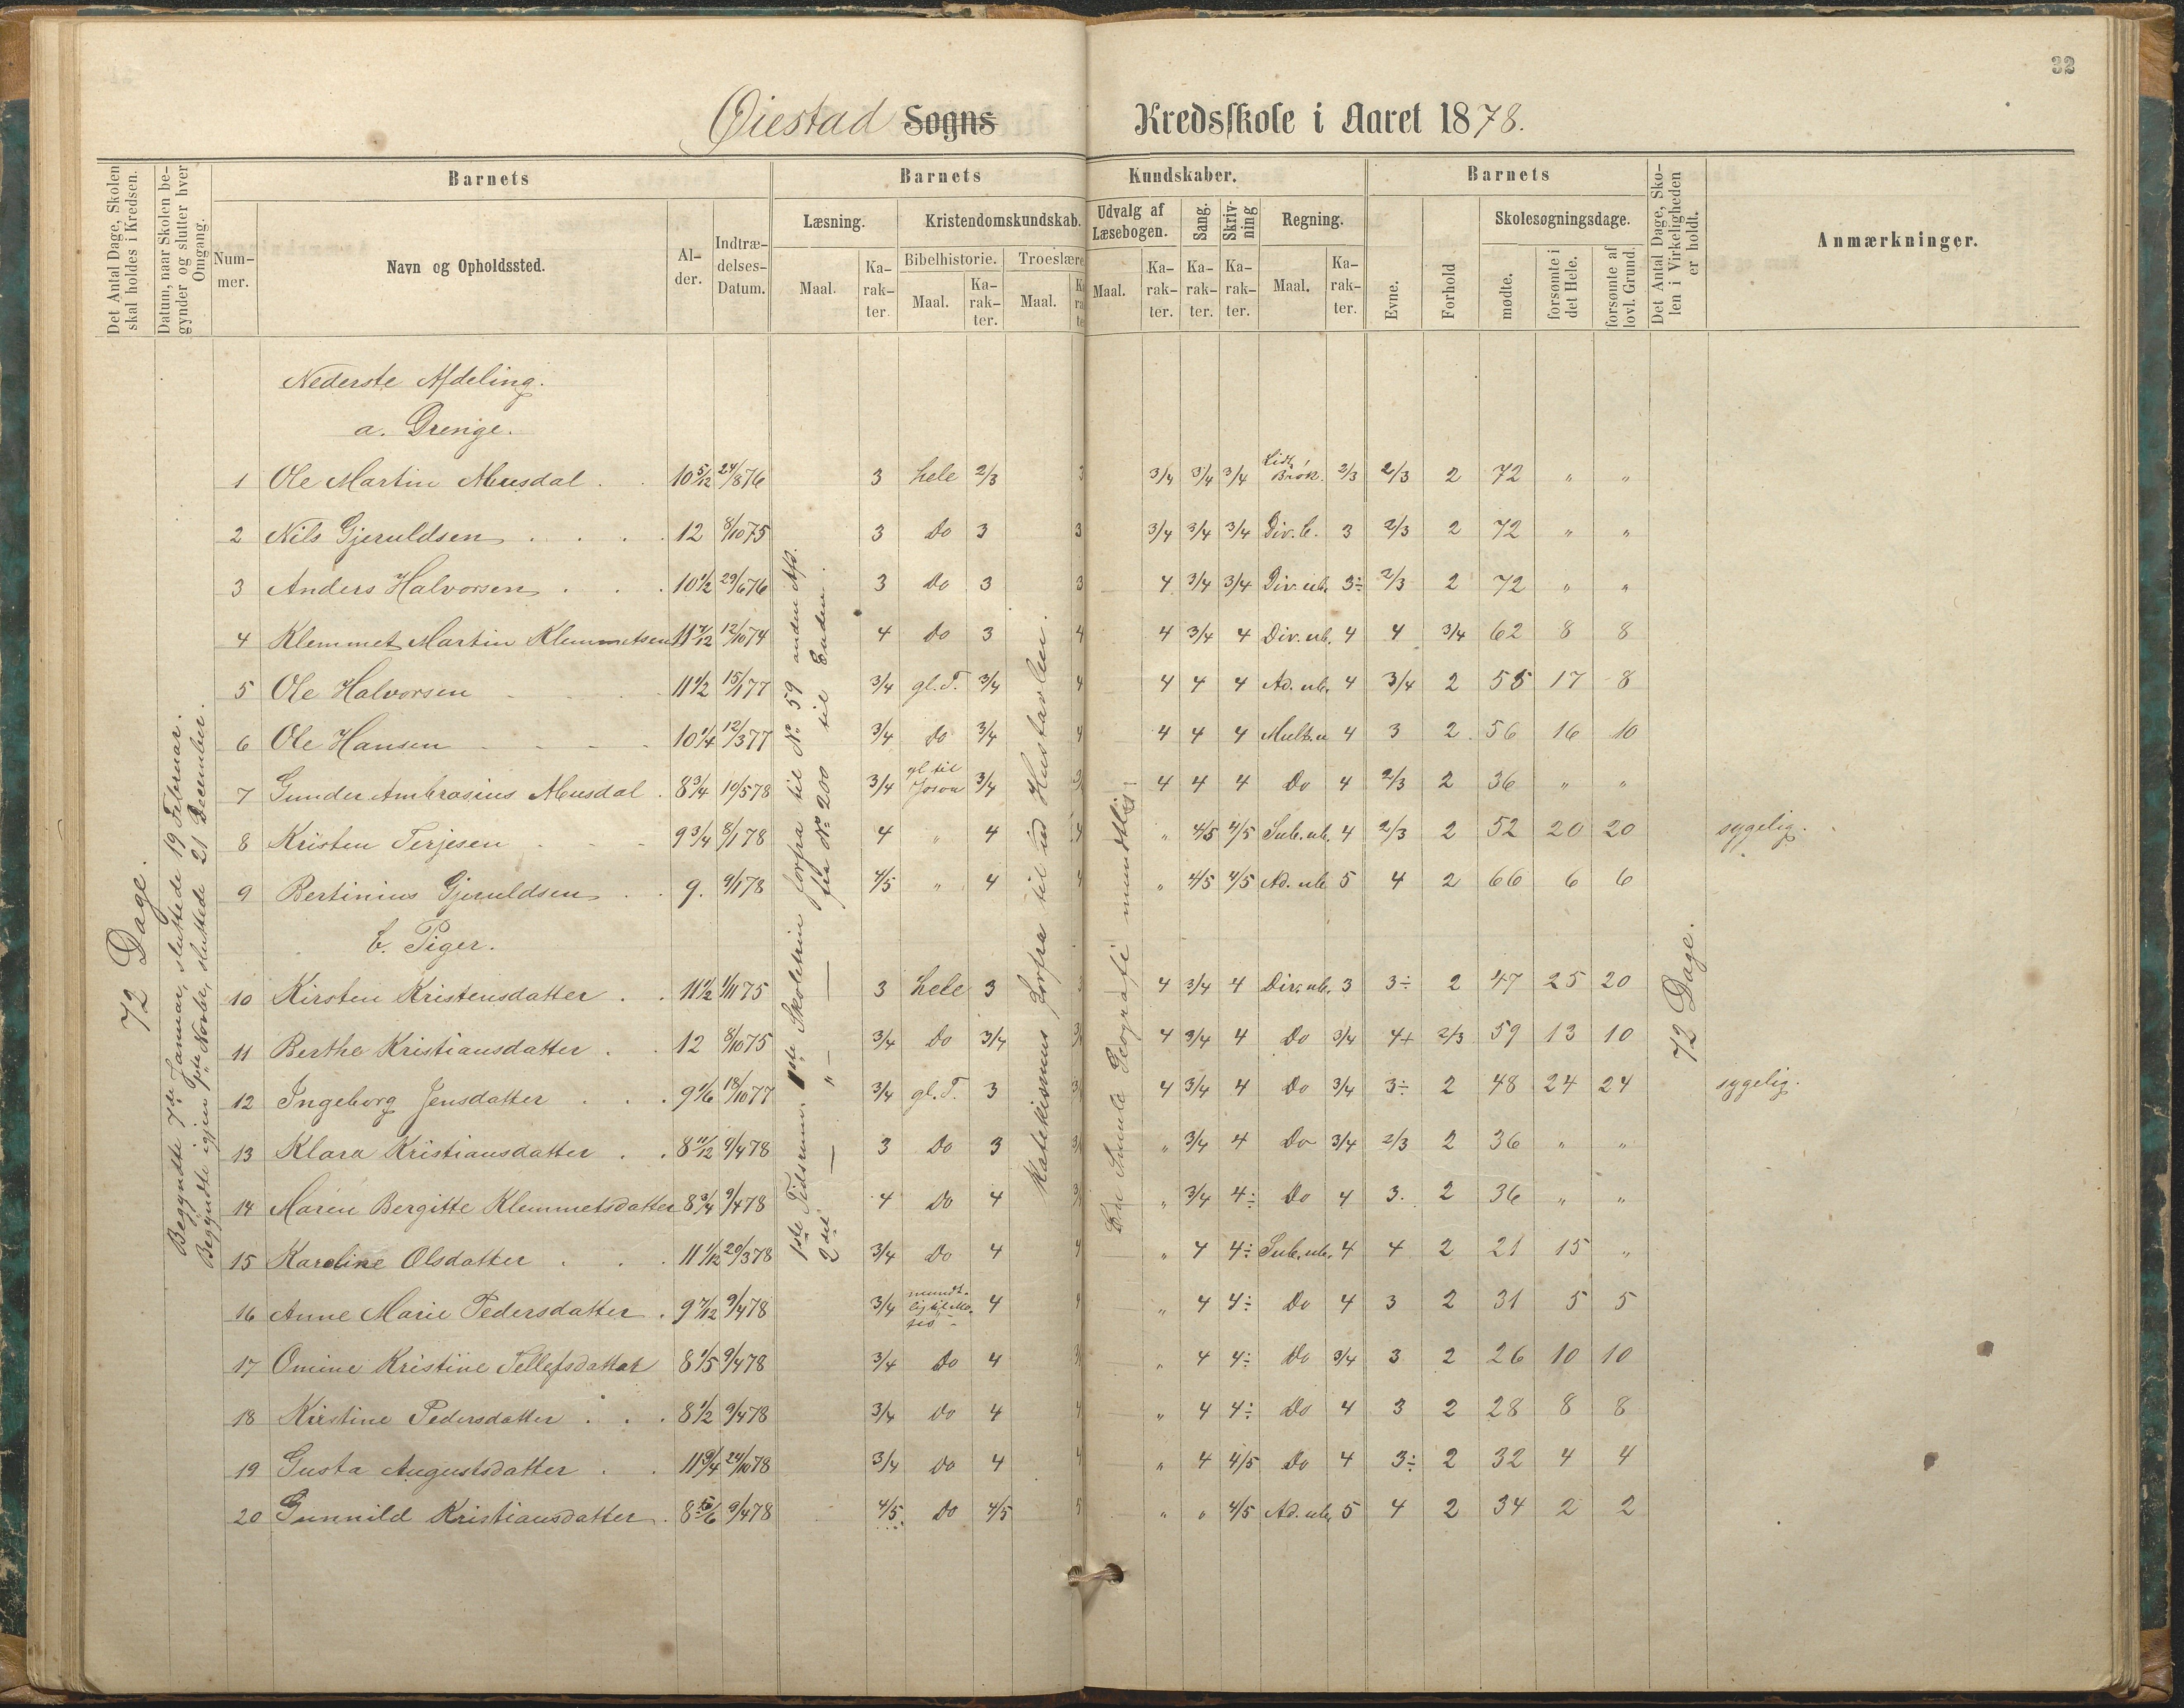 32
Øiestad Sogns Kredsskole i Aaret 1878.
Det Antal Dage, Skolen skal holdes i Kredsen.
Datum, naar Skolen begynder og slutter hver Omgang.
Barnets
Nummer.
Navn og Opholdssted.
Alder.
Indtrædelses-Datum.
Barnets Kundskaber.
Læsning.
Maal.
Karakter.
Kristendomskundskab.
Bibelhistorie.
Maal.
Karakter.
Troeslære
Maal.
Udvalg af Læsebogen.
Maal.
Karakter.
Sang.
Karakter.
Skrivning
Karakter.
Regning.
Maal.
Karakter.
Barnets
Evne.
Forhold
Skolesøgningsdage.
mødte.
forsømte i det Hele.
forsømte af lovl. Grund.
Det Antal Dage, Skolen i Virkeligheden er holdt.
Anmærkninger.
72 Dage.
Begyndte 7de Januar, sluttede 19 Februar.
Begyndte igjen 1ste Novbr, sluttede 21 December.
1ste Tidsrum 1ste Skoletrin forfra til No 59 anden Afd.
2det — " — — fra No 200 til Enden.
Katekismus forfra til ud Hustavlen.
72 Dage.
Nederste Afdeling.
a. Drenge.
1 Ole Martin Messdal 10 5/12 24/8 76 3 hele 2/3 3 3/4 3/4 3/4 Lidt Brøk. 2/3 2/3 2 72 " "
2 Nils Gjeruldsen 12 8/10 75 3 Do 3 3 3/4 3/4 3/4 Div. b. 3 2/3 2 72 " "
3 Anders Halvorsen 10 1/2 29/6 76 3 Do 3 3 4 3/4 3/4 Div. ub. 3÷ 2/3 2 72 " "
4 Klemmet Martin Klemmetsen 11 7/12 12/10 74 4 Do 3 4 4 3/4 4 Div. ub. 4 4 3/4 62 8 8
5 Ole Halvorsen 11 1/2 15/1 77 3/4 gl. T. 3/4 4 4 4 4 Ad. ub. 4 3/4 2 55 17 8
6 Ole Hansen 10 1/4 12/3 77 3/4 Do 3/4 4 4 4 4 Mult. u 4 3 2 56 16 10
7 Gunder Ambrosius Messdal 8 3/4 10/5 78 3/4 gl til Josva 3/4 4 4 4 Do 4 2/3 2 36 " "
8 Kristen Terjesen 9 3/4 8/1 78 4 " 4 4 " 4/5 4/5 Sub. ub. 4 2/3 2 52 20 20 sygelig.
9 Bertinius Gjeruldsen 9. 9/1 78 4/5 " 4 4 " 4/5 4/5 Ad. ub 5 4 2 66 6 6
b. Piger.
10 Kirsten Kristensdatter 11 1/2 1/11 75 3 hele 3 3 4 3/4 4 Div. ub. 3 3÷ 2 47 25 20
11 Berthe Kristiansdatter 12 8/10 75 3/4 Do 3/4 4 3/4 4 Do 3/4 4+ 2/3 59 13 10
12 Ingeborg Jensdatter 9 1/6 18/10 77 3/4 gl. T. 3 4 3/4 4 Do 3/4 3÷ 2 48 24 24 sygelig.
13 Klara Kristiansdatter 8 11/12 9/4 78 3 Do 3 " 3/4 4 Do 3/4 2/3 2 36 " "
14 Maren Bergitte Klemmetsdatter 8 3/4 9/4 78 4 Do 4 " 3/4 4÷ Do 4 3. 2 36 " "
15 Karoline Olsdatter 11 1/12 20/3 78 3/4 Do 4 4 " 4 4÷ Sub. ub. 4 4 2 21 15 "
16 Anne Marie Pedersdatter 9 7/12 9/4 78 3/4 mundtlig til Moses 4 4 " 4 4÷ Do 4 3 2 31 5 5
17 Omine Kristine Tellefsdatter 8 1/5 9/4 78 3/4 Do 4 " 4 4÷ Do 3/4 3 2 26 10 10
18 Kirstine Pedersdatter 8 1/2 9/4 78 3/4 Do 4 4 " 4 4÷ Do 4 3 2 28 8 8
19 Gusta Augustsdatter 11 3/4 24/10 78 3/4 Do 4 4 " 4 4/5 Do 4 3÷ 2 32 4 4
20 Gunnild Kristiansdatter 8 5/6 9/4 78 4/5 Do 4/5 5 " " 4/5 Ad. ub. 5 4 2 34 2 2